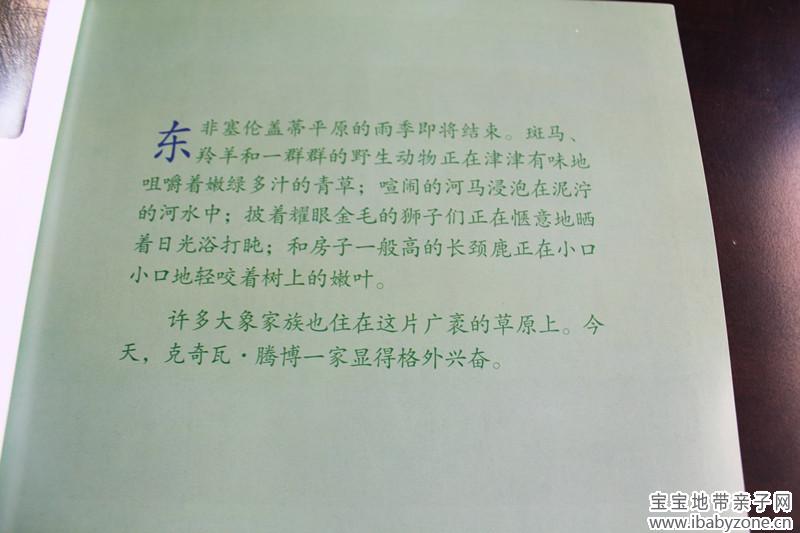 东非塞伦盖蒂平原的雨季即将结束。斑马、
羚羊和一群群的野生动物正在津津有味地
咀嚼着嫩绿多汁的青草；喧闹的河马浸泡在泥泞
的河水中；披着耀眼金毛的狮子们正在惬意地晒
着日光浴打盹；和房子一般高的长颈鹿正在小口
小口地轻咬着树上的嫩叶。
许多大象家族也住在这片广袤的草原上。今
天，克奇瓦·腾博一家显得格外兴奋。
宝宝地带亲子网
www.ibabyzone.cn